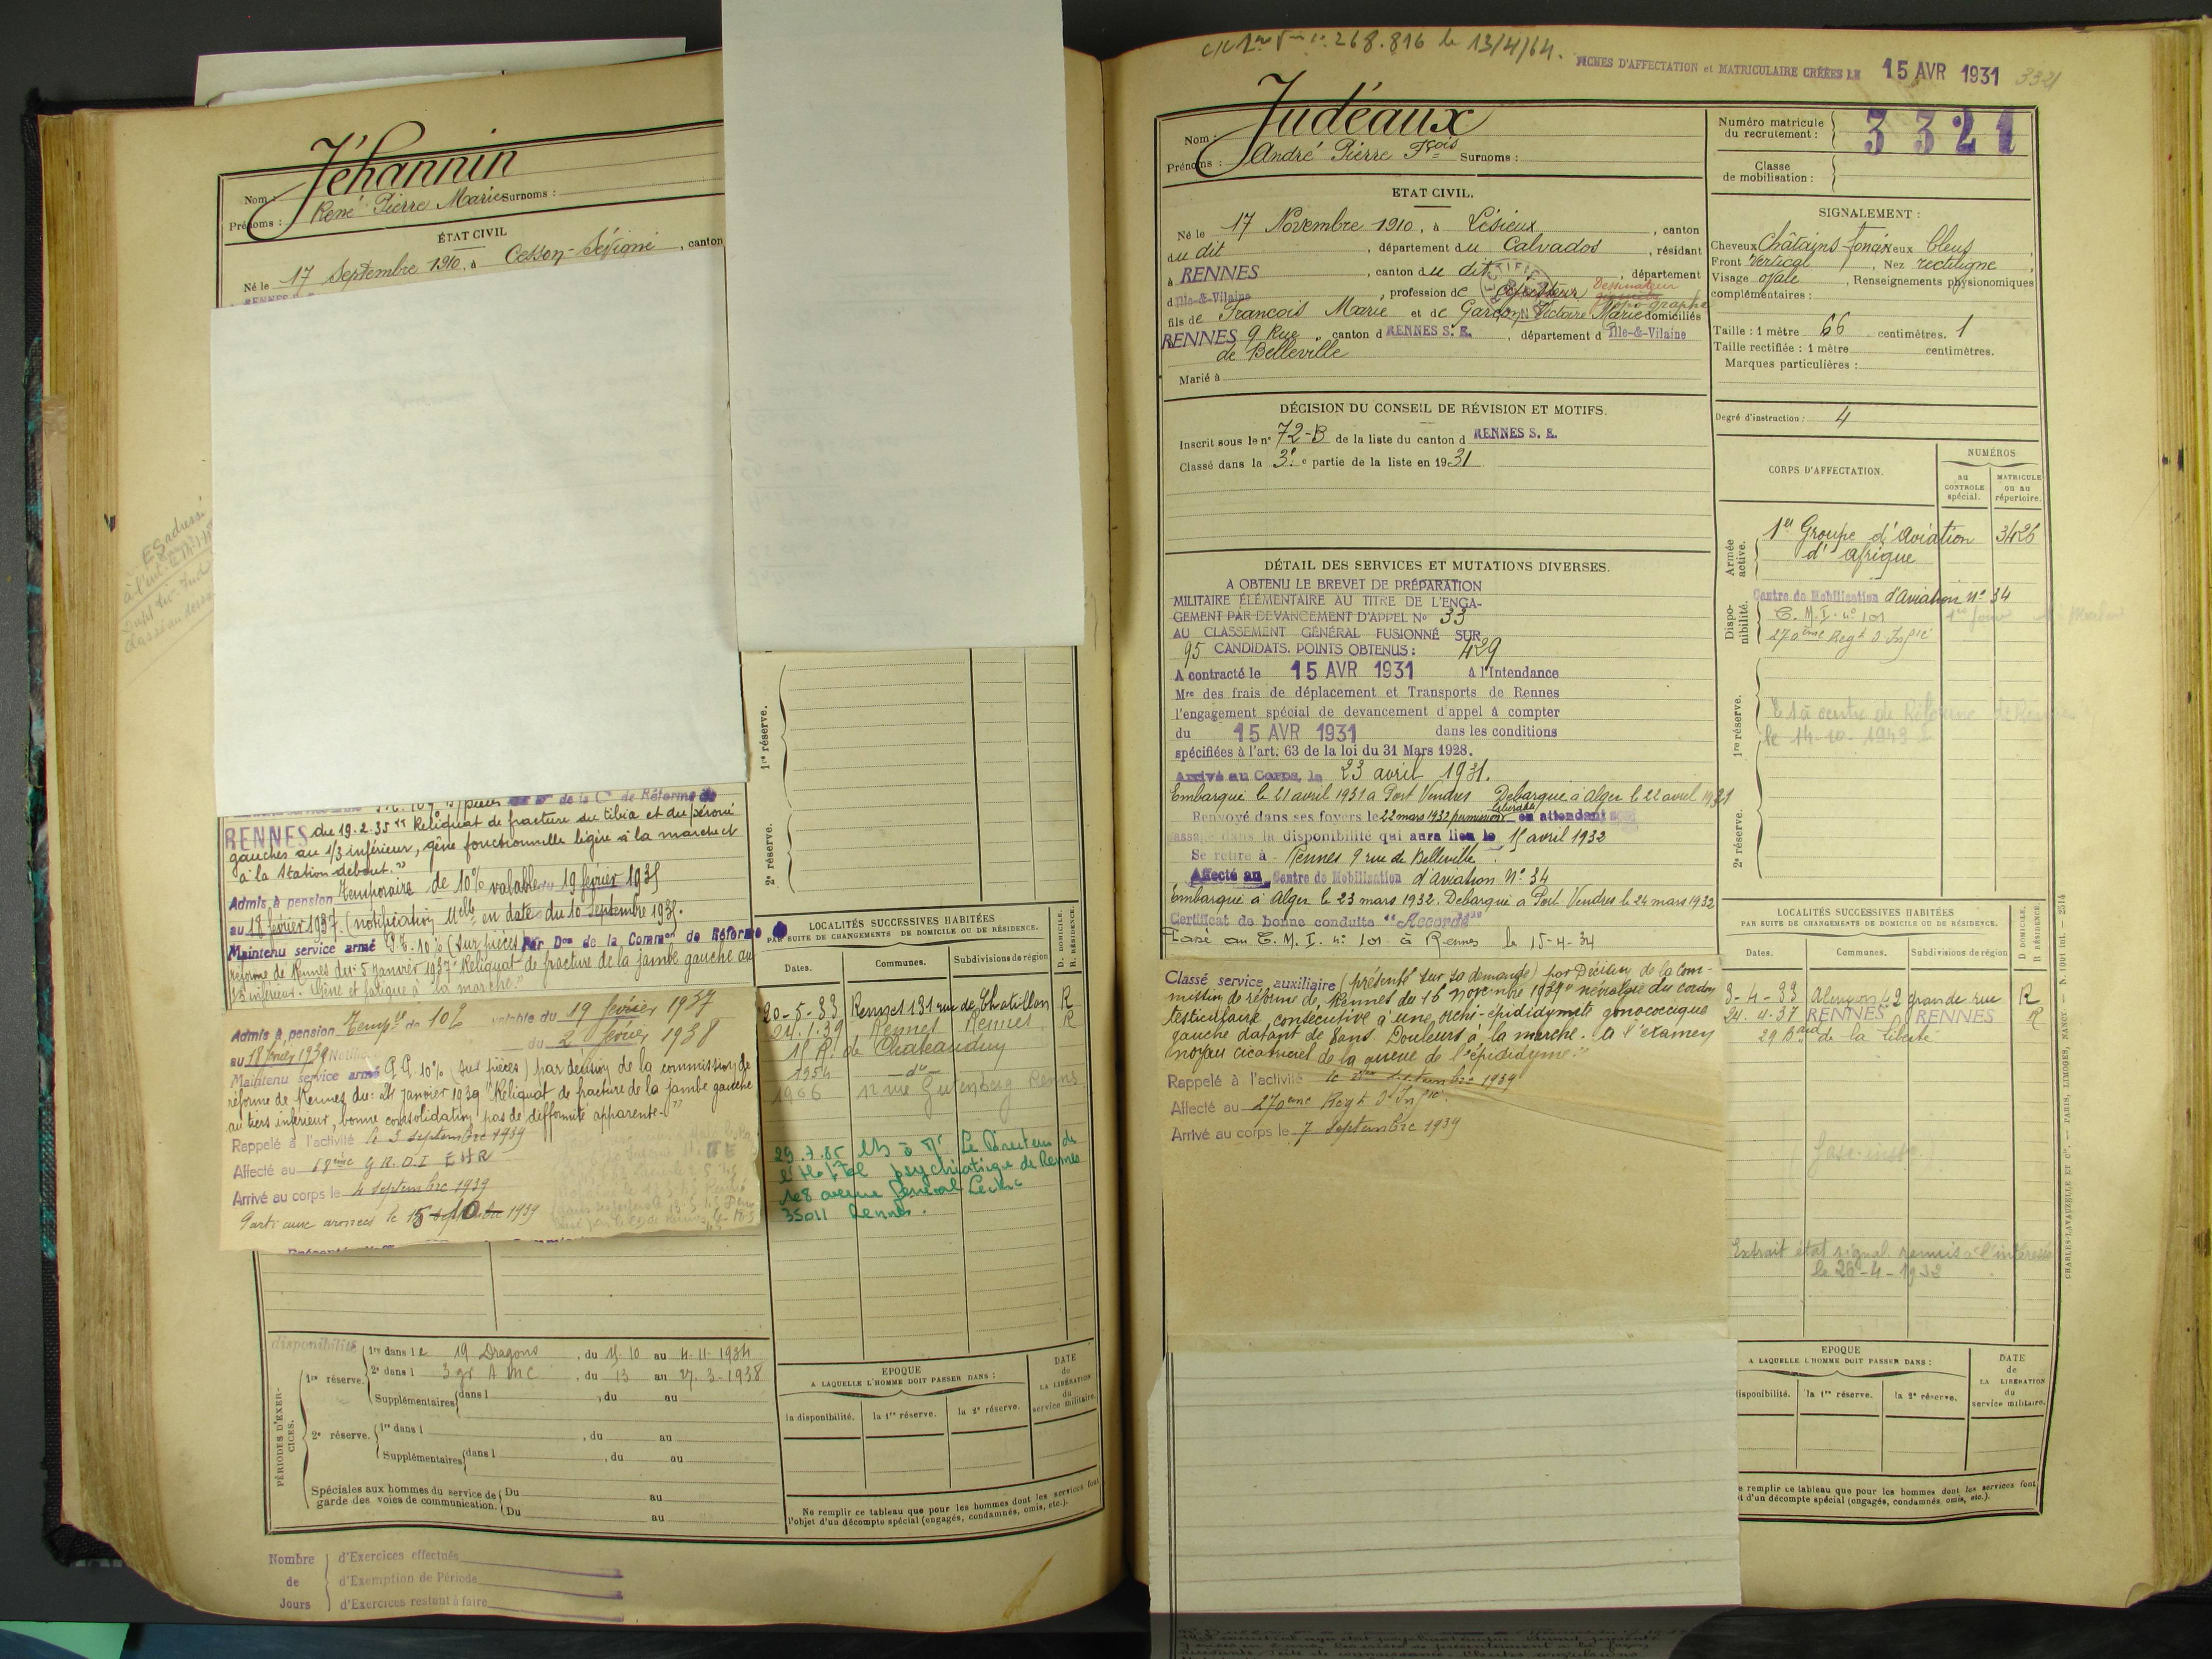 Jéhannin
Nom :
Prénoms : René Pierre Marie Surnoms :
ÉTAT CIVIL
Né le 17 Septembre 1910, à Cesson-Sévigné, canton
RENNES du 19.2.35 "Reliquat de fracture du tibia et du péroné
gauches au 1/3 inférieur, gêne fonctionnelle légère à la marche et
à la station debout."
Admis à pension temporaire de 10% valable du 19 février 1935
au 18 février 1937. (notification Melle en date du 10 Septembre 1935.
Maintenu service armé P.T. 10% (sur pièces) Par Don de la Common de Réforme
réforme de Rennes du 5 janvier 1937 "Reliquat de fracture de la jambe gauche au
1/3 inférieur. Gêne et fatigue à la marche."
Admis à pension temp de 10% valable du 19 février 1937
au 18 février 1939 du 2 février 1938
Maintenu service armé P.P. 10% (sur pièces) par décision de la commission de
réforme de Rennes du: janvier 1939 "Reliquat de fracture de la jambe gauche
au tiers inférieur, bonne consolidation, pas de difformité apparente."
Rappelé à l'activité le 3 septembre 1939
Affecté au 18ème G.R.D.I E H R
Arrivé au corps le 4 septembre 1939
Parti aux armées le 15 1939
disponibilité
PÉRIODES D'EXERCICES.
1re réserve. 1re dans le 19 Dragons, du 15.10 au 4-11-1934
2e dans l 3 gr A M C, du 13 au 27.3-1938
Supplémentaires dans l , du au
2e réserve. 1re dans l , du au
Supplémentaires dans l , du au
Spéciales aux hommes du service de garde des voies de communication. Du au
Du au
Nombre de Jours
d'Exercices effectués
d'Exemption de Période
d'Exercices restant à faire
1re réserve.
2e réserve.
LOCALITÉS SUCCESSIVES HABITÉES
PAR SUITE DE CHANGEMENTS DE DOMICILE OU DE RÉSIDENCE.
D. DOMICILE. R. RÉSIDENCE.
Dates. Communes. Subdivisions de région
20-5-33 Rennes 131 rue de Chatillon R
24.1.39 Rennes Rennes R
15 R. de Chateaudun
1954 — do —
1966 12 rue Gutenberg Rennes
29.7.85 Le Directeur de
l'Hôpital psychiatrique de Rennes
108 avenue Général Leclerc
35011 Rennes.
EPOQUE
A LAQUELLE L'HOMME DOIT PASSER DANS :
DATE de LA LIBÉRATION du service militaire.
la disponibilité. la 1re réserve. la 2e réserve.
Ne remplir ce tableau que pour les hommes dont les services font
l'objet d'un décompte spécial (engagés, condamnés, omis, etc.).
268.816 le 13/4/64.
FICHES D'AFFECTATION et MATRICULAIRE CRÉÉES LE 15 AVR 1931 3321
Judéaux
Nom :
Prénoms : André Pierre Fçois Surnoms :
Numéro matricule du recrutement : 3321
Classe de mobilisation :
ETAT CIVIL.
Né le 17 Novembre 1910, à Lisieux, canton
du dit, département du Calvados, résidant
à RENNES, canton du dit, département
d'Ille-&-Vilaine, profession de Dessinateur
topographe
fils de François Marie et de Garçon Victoire Marie domiciliés
RENNES 9 Rue, canton d RENNES S. E., département d'Ille-&-Vilaine
de Belleville
Marié à
SIGNALEMENT :
Cheveux Châtains foncés Yeux bleus
Front Vertical, Nez rectiligne
Visage ovale, Renseignements physionomiques
complémentaires :
Taille : 1 mètre 66 centimètres. 1
Taille rectifiée : 1 mètre centimètres.
Marques particulières :
Degré d'instruction : 4
DÉCISION DU CONSEIL DE RÉVISION ET MOTIFS.
Inscrit sous le n° 72-B de la liste du canton d RENNES S. E.
Classé dans la 3e partie de la liste en 1931
CORPS D'AFFECTATION.
NUMÉROS
au CONTROLE spécial. MATRICULE ou au répertoire.
Armée active. 1er Groupe d'Aviation 3426
d'Afrique
Disponibilité. Centre de Mobilisation d'Aviation N° 34
C. M. I. n° 101
270ème Regt d'Infie
1re réserve.
centre de Réforme de Rennes
le 14-10-1943
2e réserve.
DÉTAIL DES SERVICES ET MUTATIONS DIVERSES.
A OBTENU LE BREVET DE PRÉPARATION
MILITAIRE ÉLÉMENTAIRE AU TITRE DE L'ENGA-
GEMENT PAR DEVANCEMENT D'APPEL N° 33
AU CLASSEMENT GÉNÉRAL FUSIONNÉ SUR
95 CANDIDATS. POINTS OBTENUS : 429
A contracté le 15 AVR 1931 à l'Intendance
Mre des frais de déplacement et Transports de Rennes
l'engagement spécial de devancement d'appel à compter
du 15 AVR 1931 dans les conditions
spécifiées à l'art. 63 de la loi du 31 Mars 1928.
Arrivé au Corps, le 23 avril 1931.
Embarqué le 21 avril 1931 à Port Vendres Debarqué à Alger le 22 avril 1931
Renvoyé dans ses foyers le 22 mars 1932 permission libérable en attendant son
passage dans la disponibilité qui aura lieu le 15 avril 1932
Se retire à Rennes 9 rue de Belleville.
Affecté au Centre de Mobilisation d'Aviation N° 34
Embarqué à Alger le 23 mars 1932. Debarqué à Port Vendres le 24 mars 1932
Certificat de bonne conduite "Accordé"
Passé au C. M. I. n° 101 à Rennes le 15-4-34
Classé service auxiliaire (présenté sur sa demande) par Décision de la com-
mission de réforme de Rennes du 15 novembre 1934 "névralgie du cordon
testiculaire consécutive à une orchi-épididymite gonococcique
gauche datant de 8 ans. Douleurs à la marche. A l'examen
noyau cicatriciel de la queue de l'épididyme."
Rappelé à l'activité le septembre 1939
Affecté au 270ème Regt d'Infie
Arrivé au corps le 7 Septembre 1939
LOCALITÉS SUCCESSIVES HABITÉES
PAR SUITE DE CHANGEMENTS DE DOMICILE OU DE RÉSIDENCE.
D. DOMICILE. R. RÉSIDENCE.
Dates. Communes. Subdivisions de région
3-4-33 Alençon 42 grande rue R
24.4.37 RENNES RENNES R
29 Bard de la Liberté
Extrait état signal. remis à l'intéressé
le 26-4-1932
EPOQUE
A LAQUELLE L'HOMME DOIT PASSER DANS :
DATE de LA LIBÉRATION du service militaire.
disponibilité. la 1re réserve. la 2e réserve.
remplir ce tableau que pour les hommes dont les services font
d'un décompte spécial (engagés, condamnés, omis, etc.).
CHARLES-LAVAUZELLE ET Cie. — PARIS, LIMOGES, NANCY. — 2514